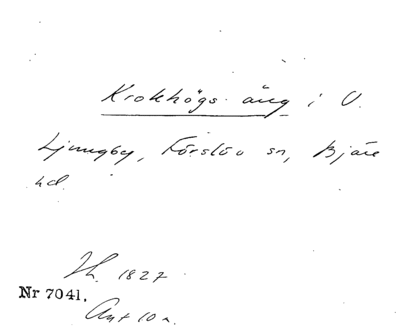 Krokhögs äng i V.
Ljungby, Förslöv sn, Bjäre
hd.
Jh. 1827
Nr 7041.
Akt 10 a.